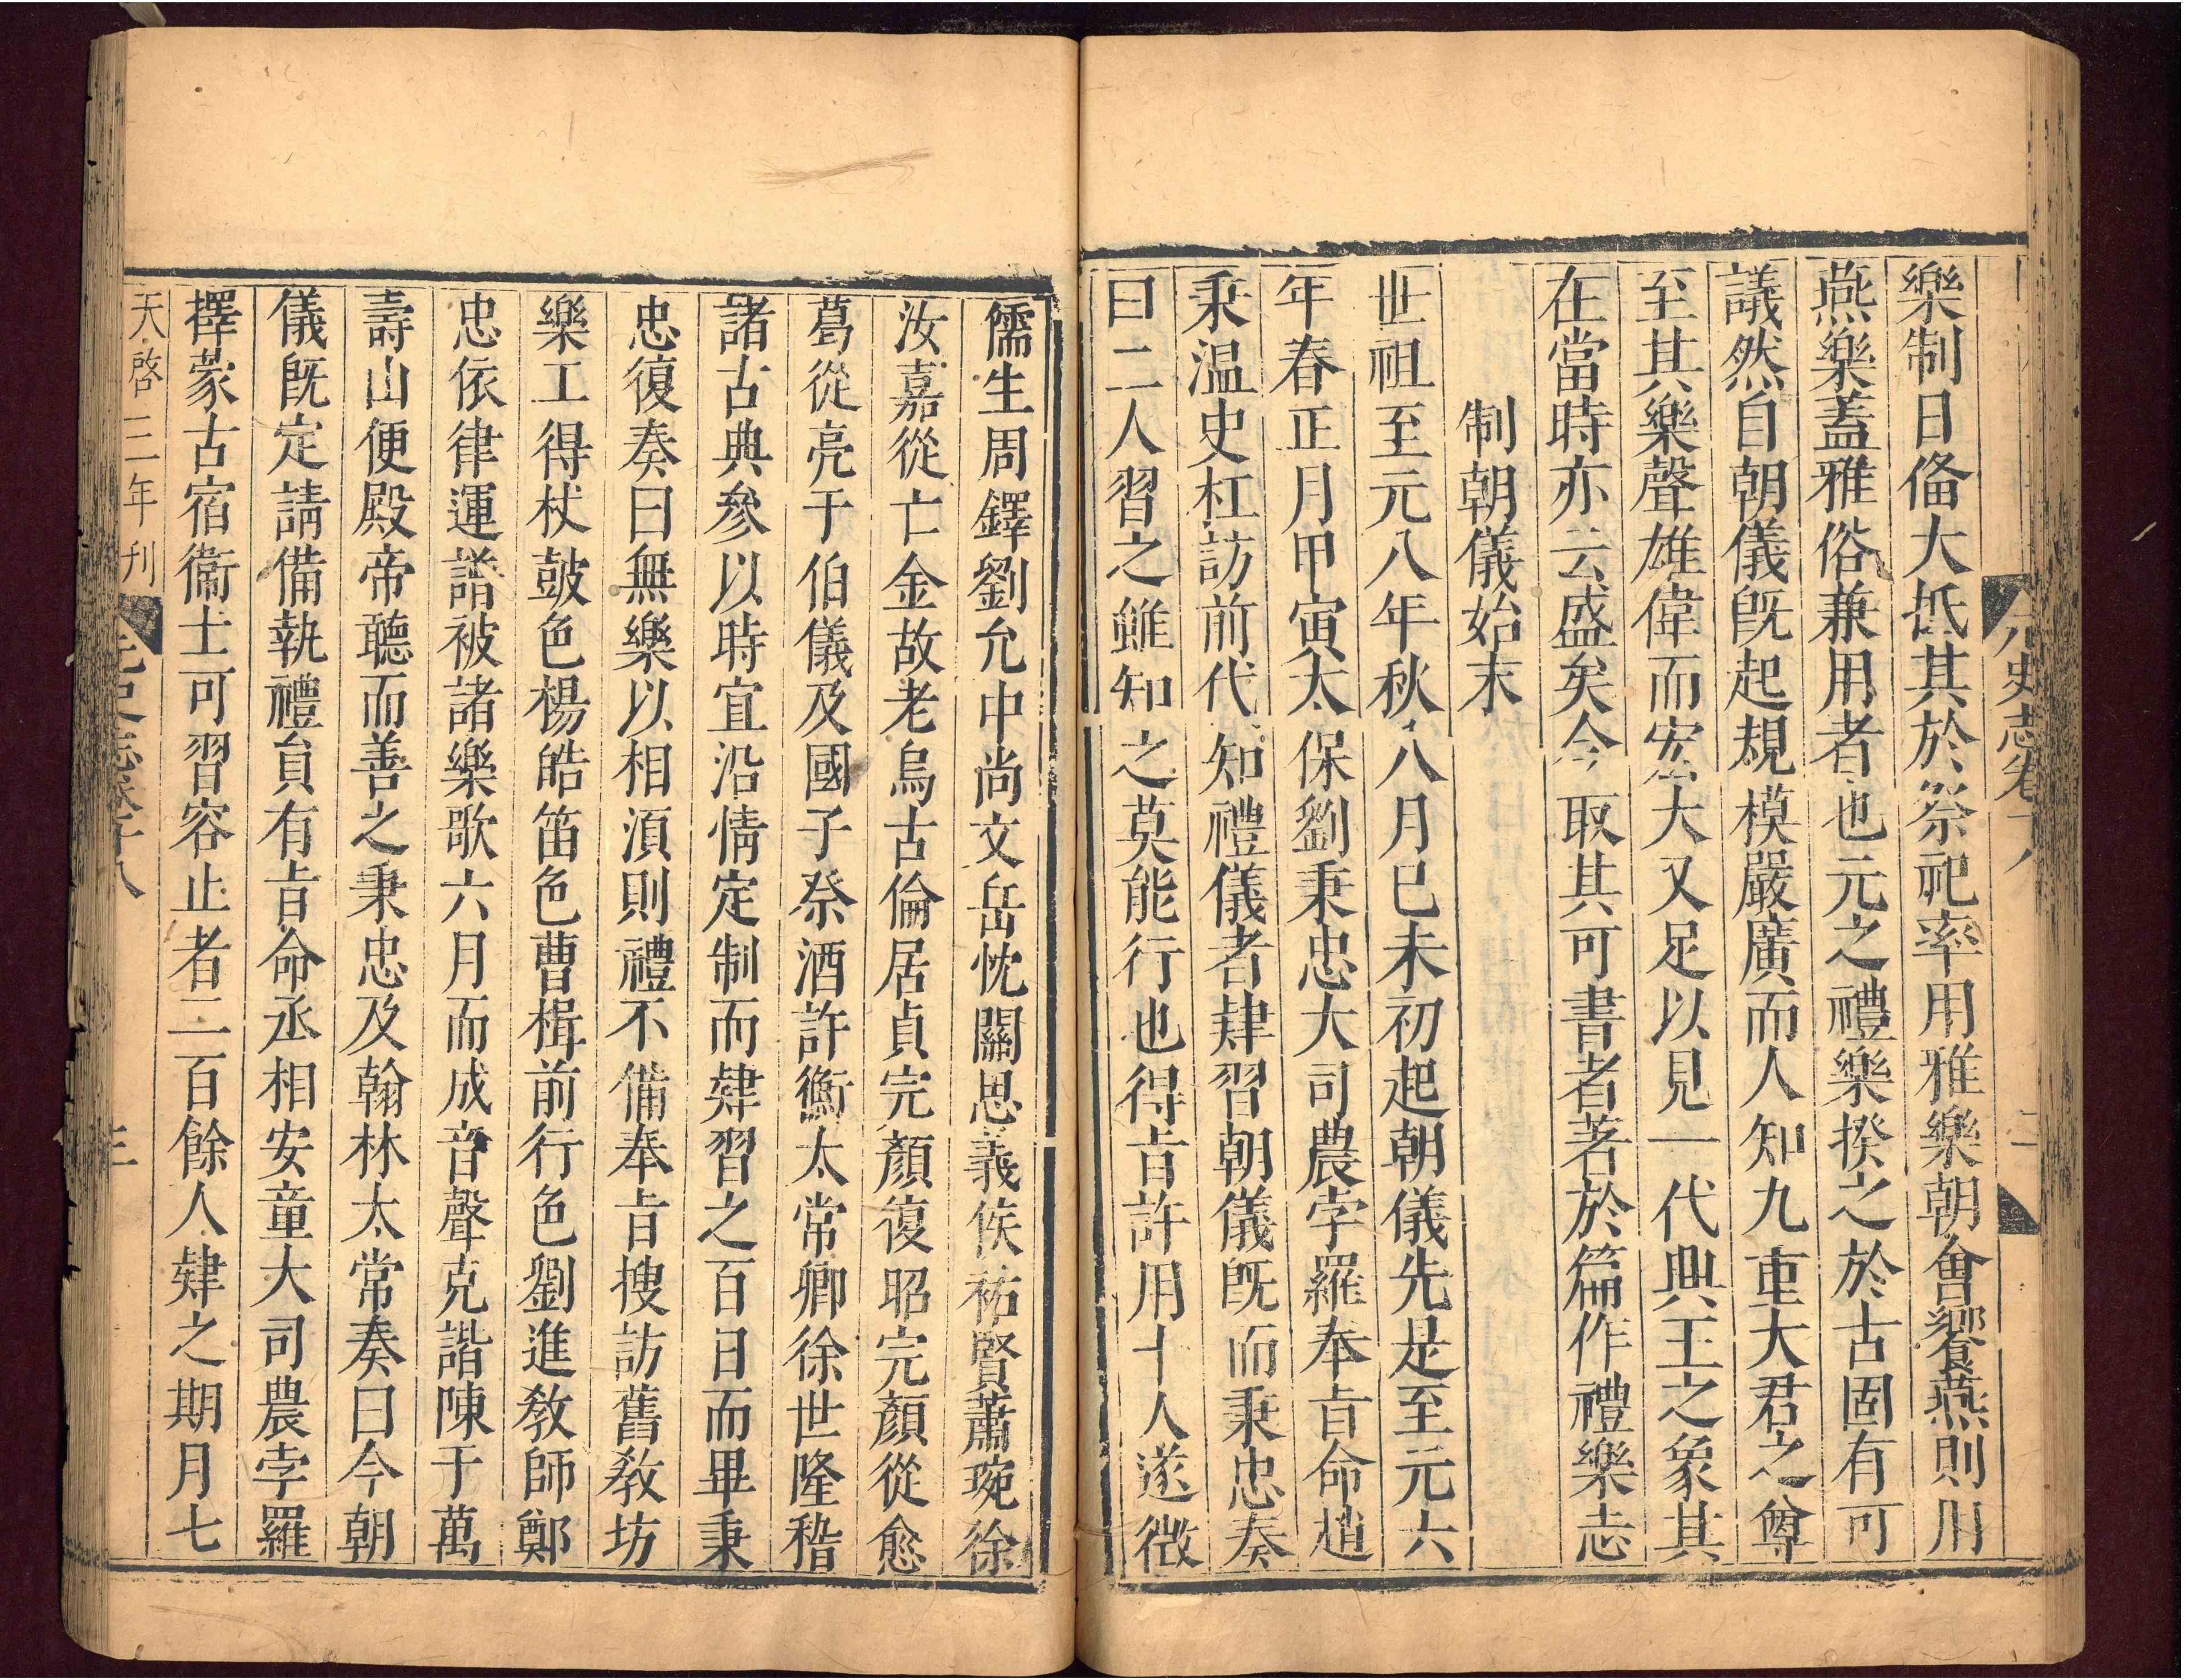 元史志卷十八
二
樂制日俻大抵其於祭祀率用雅樂朝會饗燕則用
燕樂蓋雅俗兼用者也元之禮樂揆之於古固有可
議然自朝儀旣起規模嚴廣而人知九重大君之尊
至其樂聲雄偉而宏大又足以見一代興王之象其
在當時亦云盛矣今取其可書者著於篇作禮樂志
制朝儀始末
世祖至元八年秋八月已未初起朝儀先是至元六
年春正月甲寅太保劉秉忠大司農孛羅奉㫖命趙
秉温史杠訪前代知禮儀者肄習朝儀旣而秉忠奏
曰二人習之雖知之莫能行也得㫖許用十人遂徴
儒生周鐸劉允中尚文岳忱關思義侯祐賢蕭琬徐
汝嘉從亡金故老烏古倫居貞完顏復昭完顏從愈
葛從亮于伯儀及國子祭酒許衡太常卿徐世隆稽
諸古典參以時宜沿情定制而肄習之百日而畢秉
忠復奏曰無樂以相湏則禮不備奉㫖搜訪舊教坊
樂工得杖鼓色楊皓笛色曹楫前行色劉進教師鄭
忠依律運譜被諸樂歌六月而成音聲克諧陳于萬
壽山便殿帝聽而善之秉忠及翰林太常奏曰今朝
儀旣定請備執禮負有㫖命丞相安童大司農孛羅
擇蒙古宿衞士可習容止者二百餘人肄之期月七
天啓三年刊
元史志卷十八
三